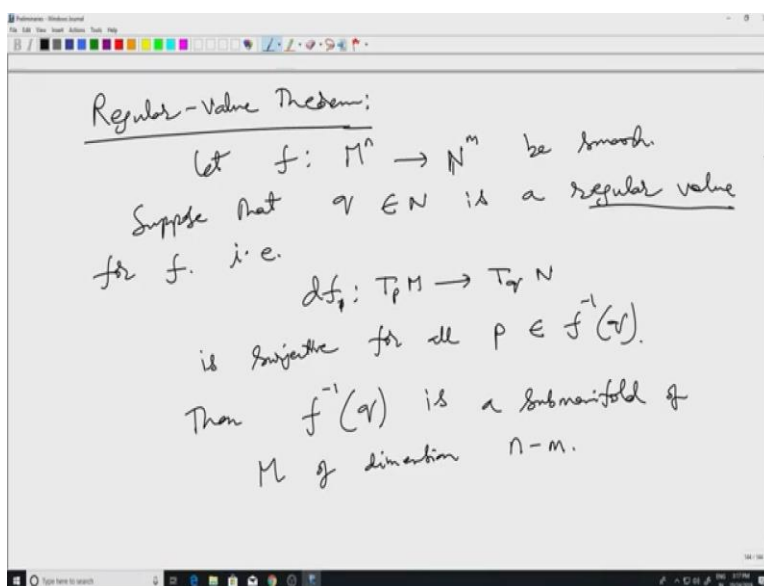 Preliminaries - Windows Journal
File Edit View Insert Actions Tools Help
Regular-Value Theorem:
Let f: Mⁿ → Nᵐ be smooth.
Suppose that q ∈ N is a regular value
for f. i.e.
df_p: T_p M → T_q N
is surjective for all p ∈ f⁻¹(q).
Then f⁻¹(q) is a submanifold of
M of dimension n-m.
Type here to search